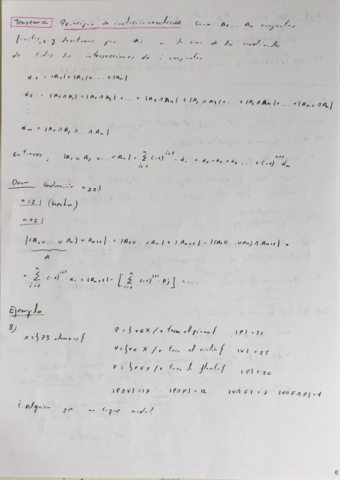 Teorema Principio de inclusión-exclusión: Sean A₁, ... Aₙ conjuntos
finitos, y definimos para αᵢ a la suma de los cardinales
de todas las intersecciones de i conjuntos
α₁ = |A₁| + |A₂| + ... + |Aₙ|
α₂ = |A₁ ∩ A₂| + |A₁ ∩ A₃| + ... + |A₁ ∩ Aₙ| + |A₂ ∩ A₃| + ... + |A₂ ∩ Aₙ| + ... + |Aₙ₋₁ ∩ Aₙ|
⋮
αₙ = |A₁ ∩ A₂ ... ∩ Aₙ|
Entonces, |A₁ ∪ A₂ ∪ ... ∪ Aₙ| = Σⁿᵢ₌₁ (-1)ⁱ⁺¹ · αᵢ = α₁ - α₂ + α₃ ... + (-1)ⁿ⁺¹ αₙ
Dem (inducción n≥2)
n=2 | (hecho)
n≥2 |
|(A₁ ∪ ... ∪ Aₙ) ∪ Aₙ₊₁| = |A₁ ∪ ... ∪ Aₙ| + |Aₙ₊₁| - |(A₁ ∪ ... ∪ Aₙ) ∩ Aₙ₊₁| =
A
= Σⁿᵢ₌₁ (-1)ⁱ⁺¹ · αᵢ + |Aₙ₊₁| - [Σⁿᵢ₌₁ (-1)ⁱ⁺¹ · βᵢ] = ...
Ejemplo
8)
X = {73 alumnos} P = {x ∈ X / x toca el piano} |P| =
V = {x ∈ X / x toca el violín} |V| = 25
F = {x ∈ X / x toca la flauta} = 20
|P ∩ V| = |P ∩ F| = 12 |V ∩ F| = |V ∩ F ∩ P| =
¿Alguien que no toque nada?